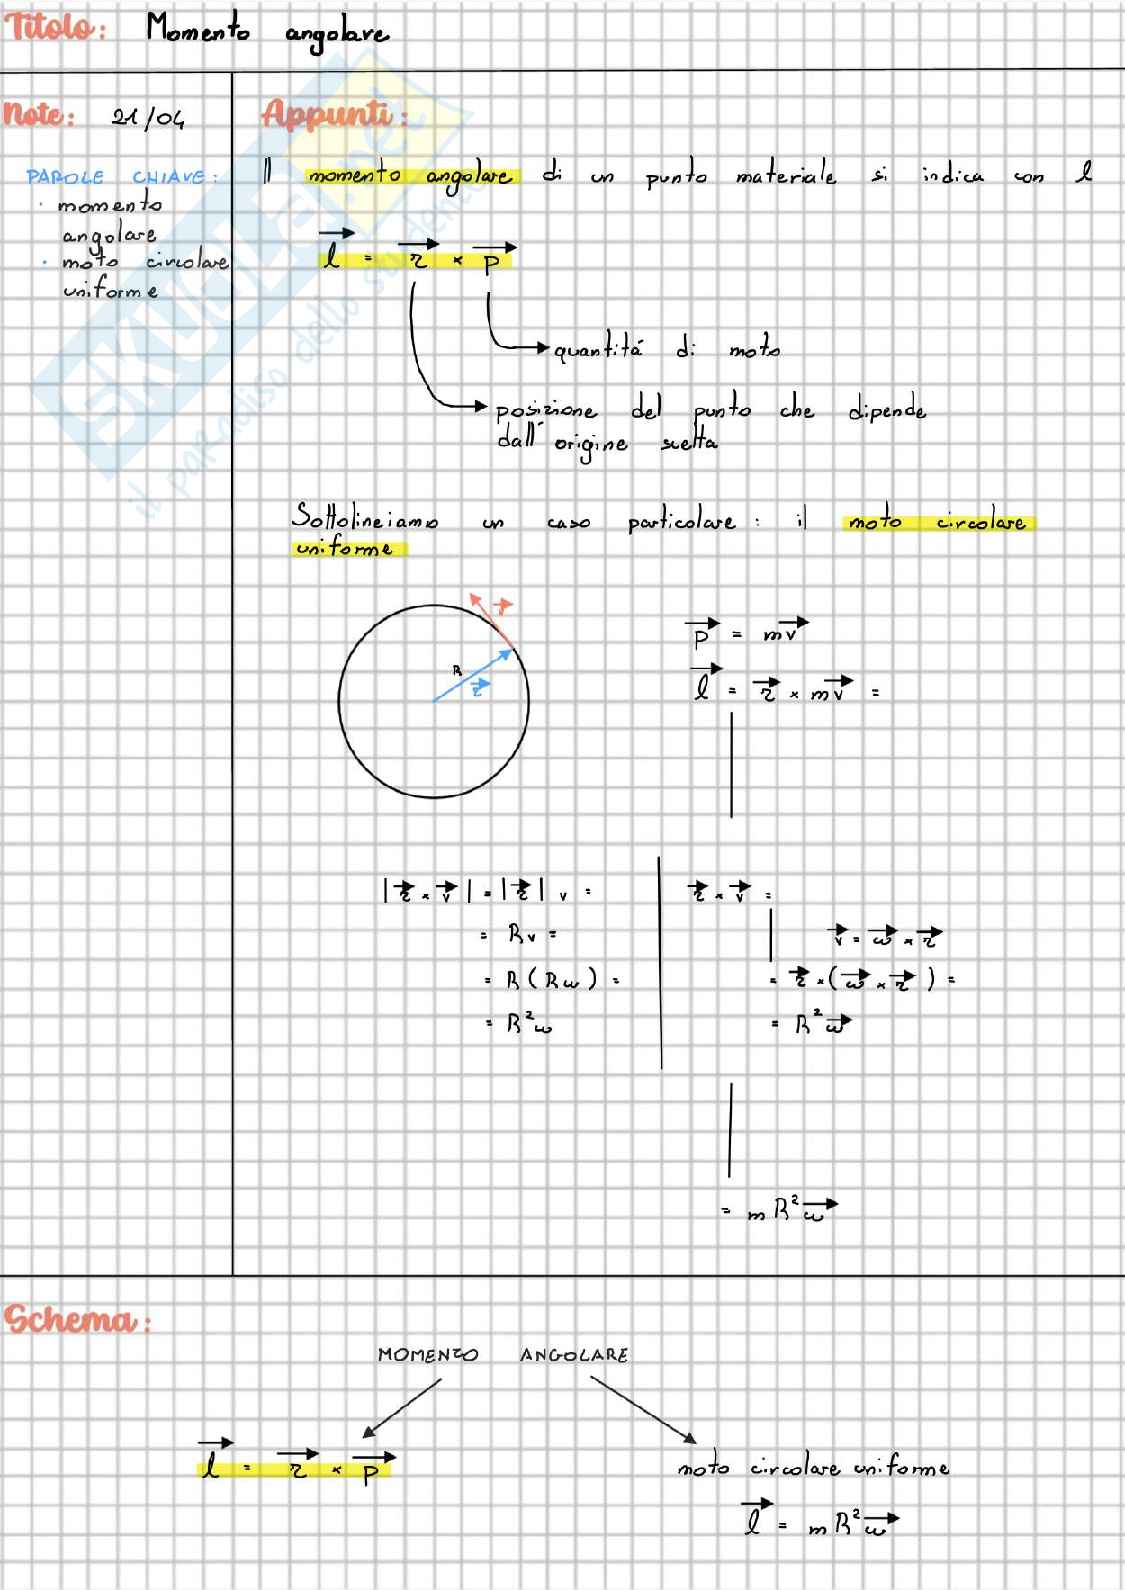 Titolo: Momento angolare
Note: 21/04
PAROLE CHIAVE:
· momento
angolare
· moto circolare
uniforme
Appunti:
Il momento angolare di un punto materiale si indica con l
l⃗ = r⃗ × p⃗
quantitá di moto
posizione del punto che dipende
dall'origine scelta
Sottolineiamo un caso particolare: il moto circolare
uniforme
p⃗
R
r⃗
p⃗ = mv⃗
l⃗ = r⃗ × mv⃗ =
|r⃗ × v⃗| = |r⃗| v =
= Rv =
= R(Rω) =
= R²ω
r⃗ × v⃗ =
v⃗ = ω⃗ × r⃗
= r⃗ × (ω⃗ × r⃗) =
= R²ω⃗
= mR²ω⃗
Schema:
MOMENTO ANGOLARE
l⃗ = r⃗ × p⃗
moto circolare uniforme
l⃗ = mR²ω⃗
SKUOLA.net
il paradiso dello studente